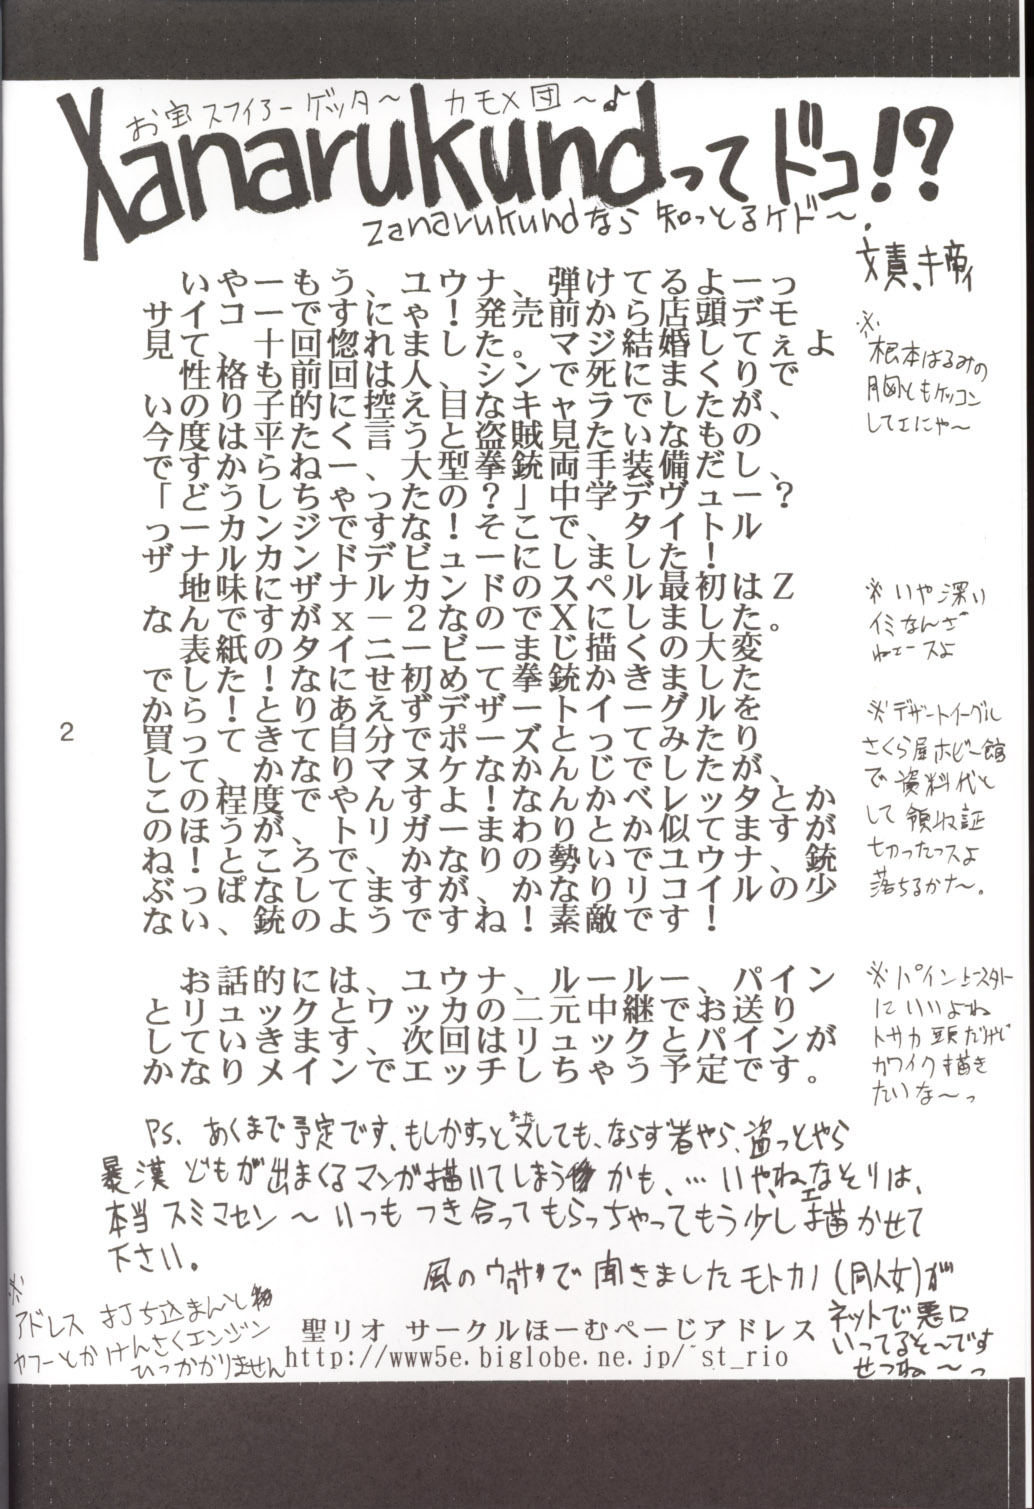 お宝スフィアーゲッタ～ カモメ団～♪
Xanarukundってドコ!?
zanarukundなら知っとるケド～.
文責、キ帝ィ
いやーもう、ユウナ、弾けてるよーっ
サイコーですにゃ！発売前から店頭デモ
見て、十回惚れました。マジ結婚してぇよ
性格も前回は人、シンで死にまくりで
いのり子的に控え目なキャラでしたが、
今度は平たく言うと盗賊見たいなもの、
ですからねー、大型拳銃両手装備だし、
「どうしちゃったの？」中学デヴュー？
っーカンジですな！そこで、タイトル
ザナルカンドデビューにしました！
地味にザナルカンドのスペル最初はZ
なんですがxー2なのでXにしました。
表紙のタイ二ービーまじ描くの大変
でした！なにせ初めて拳銃かきました
からとりあえずデザートイーグルを
買ってきて自分でポーズとってみたり
して、かなりマヌケなかんじでしたが、
この程度でやんすよ！なんかベレッタとか
のほうがトリガーまわりとか似てますが
ね！ところで、かなりの勢いでユウナ、銃
ぶっぱなしてますが、かなりリコイルの少
ない銃のようですね！素敵です！
お話的には、ユウナ、ルールー、パイン
とリュックとワッカの二元中継でお送り
していきます、次回はリュックとパインが
かなりメインでエッチしちゃう予定です。
※根本はるみの
胸ともケッコン
してェにゃ～
※いや深い
イミなんざ
ねェースよ
※デザートイーグル
さくら屋ホビー館
で資料代と
して領収証
切ったっスよ
落ちるかナ～。
※パイン
にいいよね
トサカ頭だけど
カワイク描き
たいな～っ
PS. あくまで予定です、もしかすっと又しても、ならず者やら、盗っとやら
また
暴漢どもが出まくるマンガ描いてしまうかも、…いやね、なそりは、
本当スミマセン～いつもつき合ってもらっちゃってもう少し描かせて
下さい。
風のウワサで聞きましたモトカノ(同人女)が
ネットで悪口
いってるそ～です
せつね～っ
※
アドレス打ち込まんと
ヤフーとかけんさくエンジン
ひっかかりません
聖リオ サークルほーむぺーじアドレス
http://www5e.biglobe.ne.jp/~st_rio
2